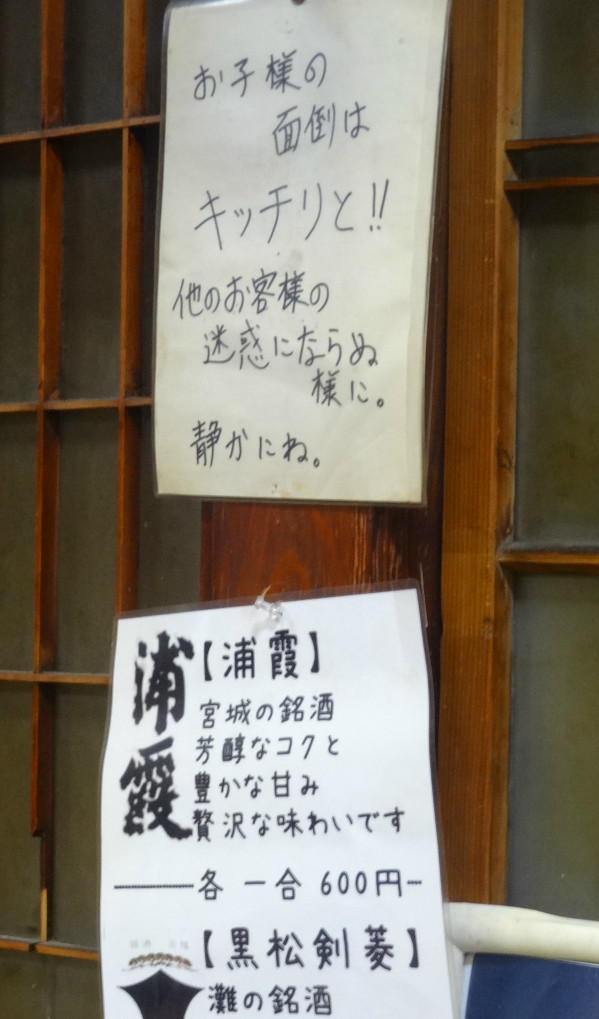 お子様の
面倒は
キッチリと!!
他のお客様の
迷惑にならぬ
様に。
静かにね。
浦霞
【浦霞】
宮城の銘酒
芳醇なコクと
豊かな甘み
贅沢な味わいです
各 一合 600円
【黒松剣菱】
灘の銘酒